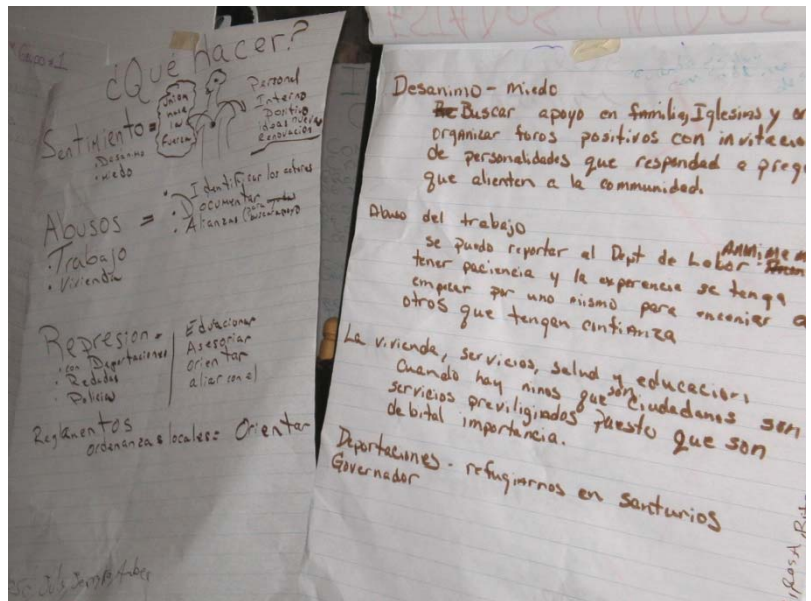 ¿Qué hacer?
Sentimiento =
• Desanimo
• Miedo
union
hace
la
fuerza
Personal
Interno
Positivo
ideas nuevas
Renovación
Abusos =
• Trabajo
• Vivienda
• Identificar los actores
• Documentar
• Alianzas
Represion =
con Deportaciones
• Redadas
• Policias
Educacionar
Asesoriar
orientar
aliar con el
Reglamentos
ordenanzas locales = Orientar
Desanimo - miedo
Buscar apoyo en familia, Iglesias y
organizar foros positivos con
de personalidades que respondad a
que alienten a la communidad.
Abuso del trabajo
se puedo reportar al Dept de Labor
tener paciencia y la experencia se tenga
empezar por uno mismo para
otros que tengan confianza
La vivienda, servicios, salud y educacion
Cuando hay ninos que son ciudadanos son
servicios previligiados puesto que son
de bital importancia.
Deportaciones - refugiarnos en santurios
Governador